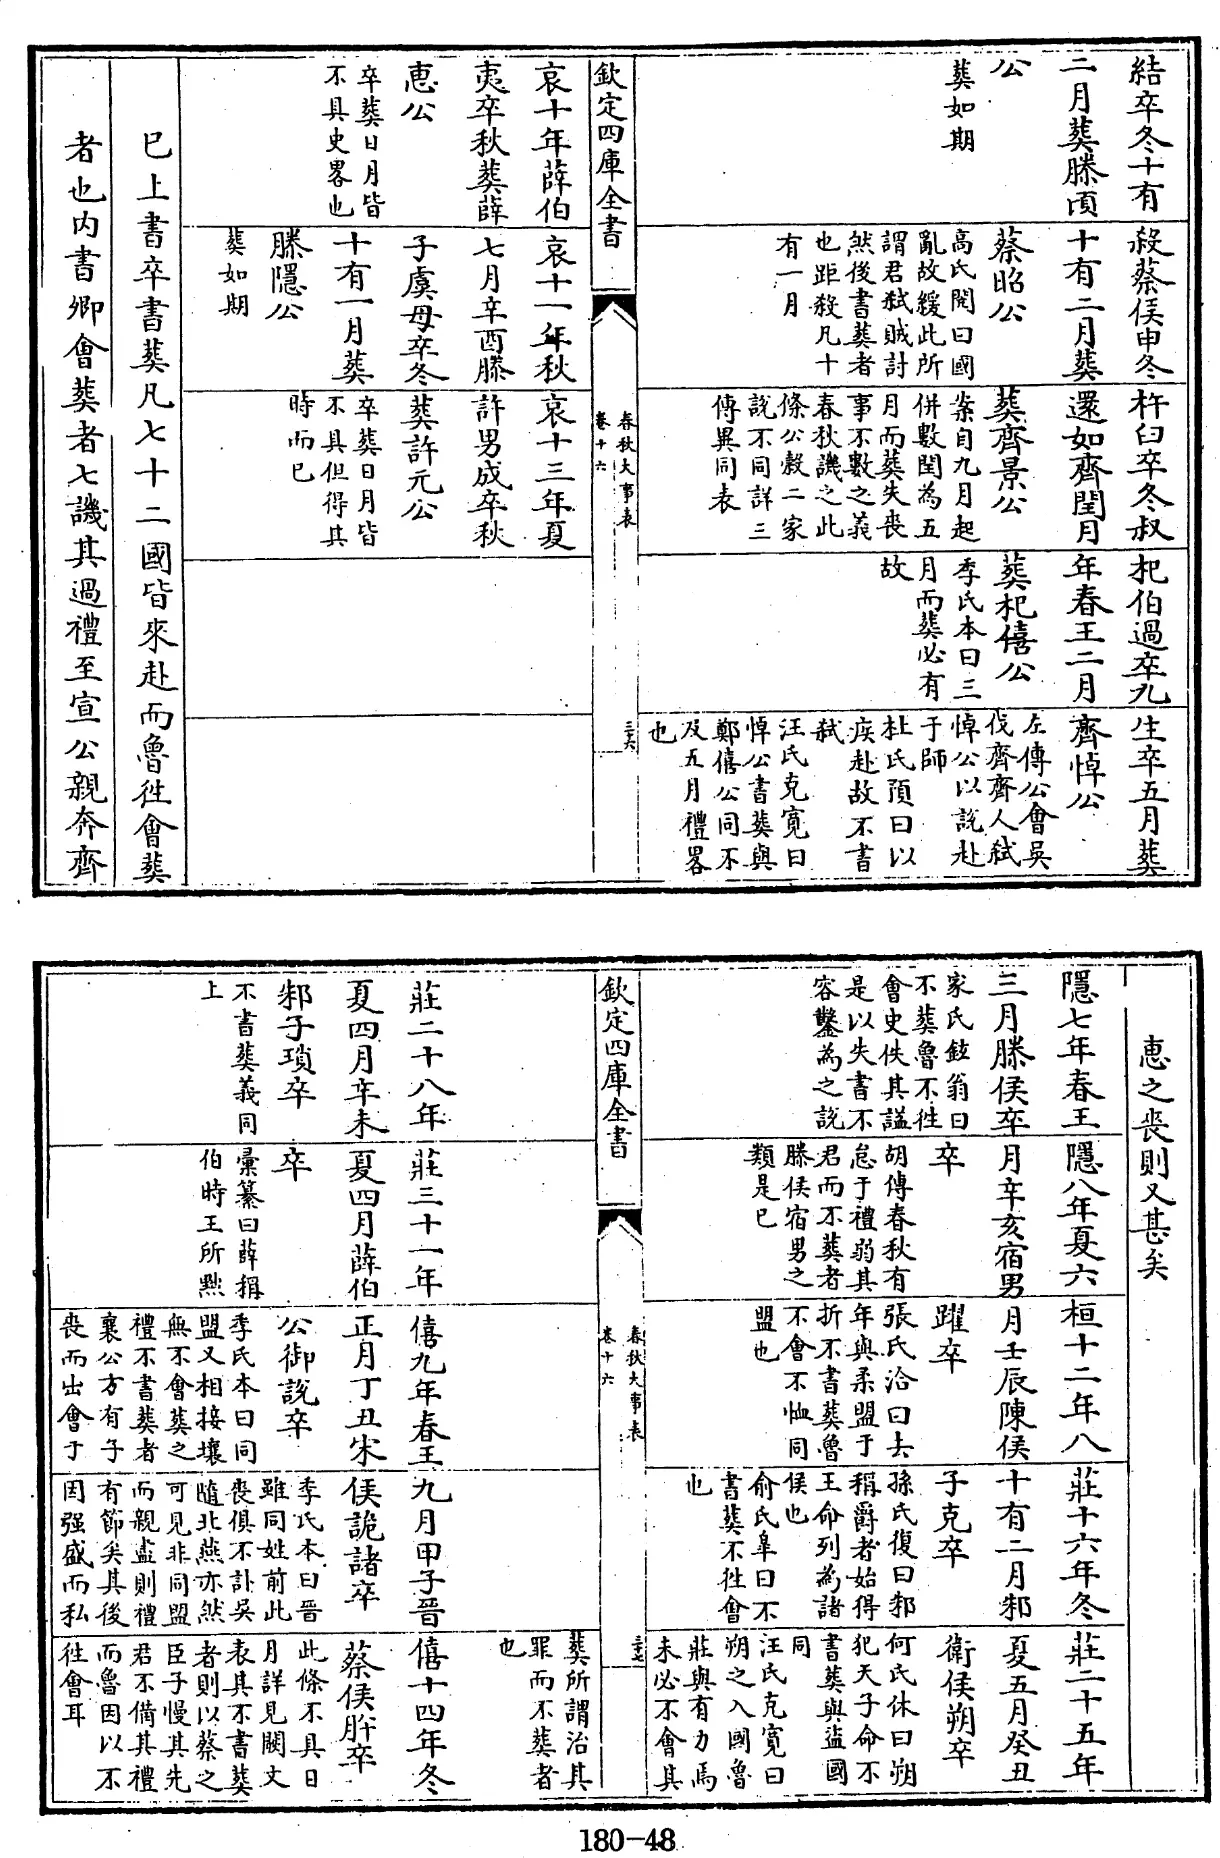 結卒冬十有
二月葬滕頃
公
葬如期
殺蔡侯申冬
十有二月葬
蔡昭公
高氏閌曰國
亂故緩此所
謂君弑賊討
然後書葬者
也距殺凡十
有一月
杵臼卒冬叔
還如齊閏月
葬齊景公
案自九月起
併數閏為五
月而葬失喪
事不數之義
春秋譏之此
條公榖二家
說不同詳三
傳異同表
杞伯過卒九
年春王二月
葬杞僖公
季氏本曰三
月而葬必有
故
生卒五月葬
齊悼公
左傳公會吳
伐齊齊人弑
悼公以說赴
于師
杜氏預曰以
疾赴故不書
弑
汪氏克寛曰
悼公書葬與
鄭僖公同不
及五月禮畧
也
欽定四庫全書
春秋大事表
卷十六
三六
哀十年薛伯
夷卒秋葬薛
惠公
卒葬日月皆
不具史畧也
哀十一年秋
七月辛酉滕
子虞母卒冬
十有一月葬
滕隱公
葬如期
哀十三年夏
許男成卒秋
葬許元公
卒葬日月皆
不具但得其
時而已
已上書卒書葬凡七十二國皆來赴而魯往會葬
者也内書卿會葬者七譏其過禮至宣公親奔齊
惠之喪則又甚矣
隱七年春王
三月滕侯卒
家氏鉉翁曰
不葬魯不徃
會史佚其諡
是以失書不
容鑿為之說
隱八年夏六
月辛亥宿男
卒
胡傳春秋有
怠于禮弱其
君而不葬者
滕侯宿男之
類是已
桓十二年八
月壬辰陳侯
躍卒
張氏洽曰去
年與柔盟于
折不書葬魯
不會不恤同
盟也
莊十六年冬
十有二月邾
子克卒
孫氏復曰邾
稱爵者始得
王命列為諸
侯也
俞氏臯曰不
書葬不徃會
也
莊二十五年
夏五月癸丑
衛侯朔卒
何氏休曰朔
犯天子命不
書葬與盗國
同
汪氏克寛曰
朔之入國魯
莊與有力焉
未必不會其
葬所謂治其
罪而不葬者
也
欽定四庫全書
春秋大事表
卷十六
三七
莊二十八年
夏四月辛未
邾子瑣卒
不書葬義同
上
莊三十一年
夏四月薛伯
卒
彙纂曰薛稱
伯時王所黜
僖九年春王
正月丁丑宋
公御說卒
季氏本曰同
盟又相接壤
無不會葬之
禮不書葬者
襄公方有子
喪而出會于
九月甲子晉
侯詭諸卒
季氏本曰晉
雖同姓前此
喪俱不訃吳
隨北燕亦然
可見非同盟
而親盡則禮
有節矣其後
因强盛而私
徃會耳
僖十四年冬
蔡侯肸卒
此條不具日
月詳見闕文
表其不書葬
者則以蔡之
臣子慢其先
君不備其禮
而魯因以不
180-48